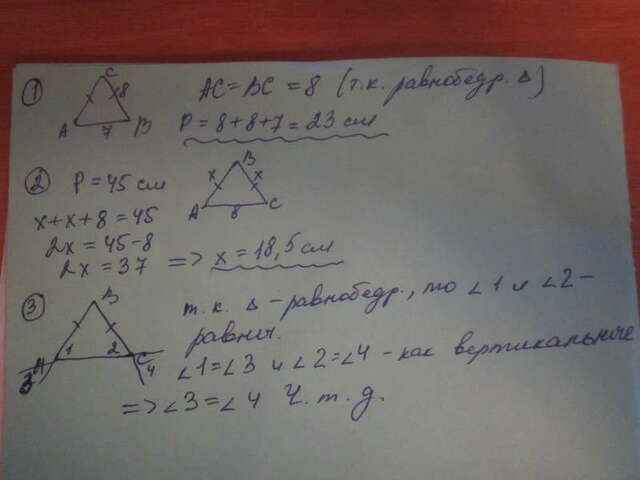 1 C AC = BC = 8 (т.к. равнобедр. Δ)
8
A 7 B P = 8 + 8 + 7 = 23 см
2 P = 45 см B
x x
x + x + 8 = 45 A 8 C
2x = 45 - 8
2x = 37 => x = 18,5 см
3 B т.к. Δ - равнобедр., то ∠1 и ∠2 -
равны.
A 1 2 C ∠1 = ∠3 и ∠2 = ∠4 - как вертикальные
3 4
=> ∠3 = ∠4 Ч.т.д.